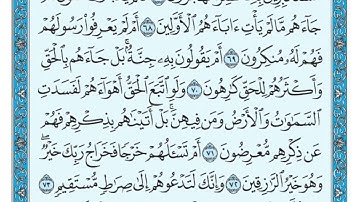 جَآءَهُم مَّا لَمْ يَأْتِ ءَابَآءَهُمُ ٱلْأَوَّلِينَ ٦٨ أَمْ لَمْ يَعْرِفُوا۟ رَسُولَهُمْ
فَهُمْ لَهُۥ مُنكِرُونَ ٦٩ أَمْ يَقُولُونَ بِهِۦ جِنَّةٌۢ بَلْ جَآءَهُم بِٱلْحَقِّ
وَأَكْثَرُهُمْ لِلْحَقِّ كَٰرِهُونَ ٧٠ وَلَوِ ٱتَّبَعَ ٱلْحَقُّ أَهْوَآءَهُمْ لَفَسَدَتِ
ٱلسَّمَٰوَٰتُ وَٱلْأَرْضُ وَمَن فِيهِنَّ ۚ بَلْ أَتَيْنَٰهُم بِذِكْرِهِمْ فَهُمْ
عَن ذِكْرِهِم مُّعْرِضُونَ ٧١ أَمْ تَسْـَٔلُهُمْ خَرْجًا فَخَرَاجُ رَبِّكَ خَيْرٌ ۖ
وَهُوَ خَيْرُ ٱلرَّٰزِقِينَ ٧٢ وَإِنَّكَ لَتَدْعُوهُمْ إِلَىٰ صِرَٰطٍ مُّسْتَقِيمٍ ٧٣